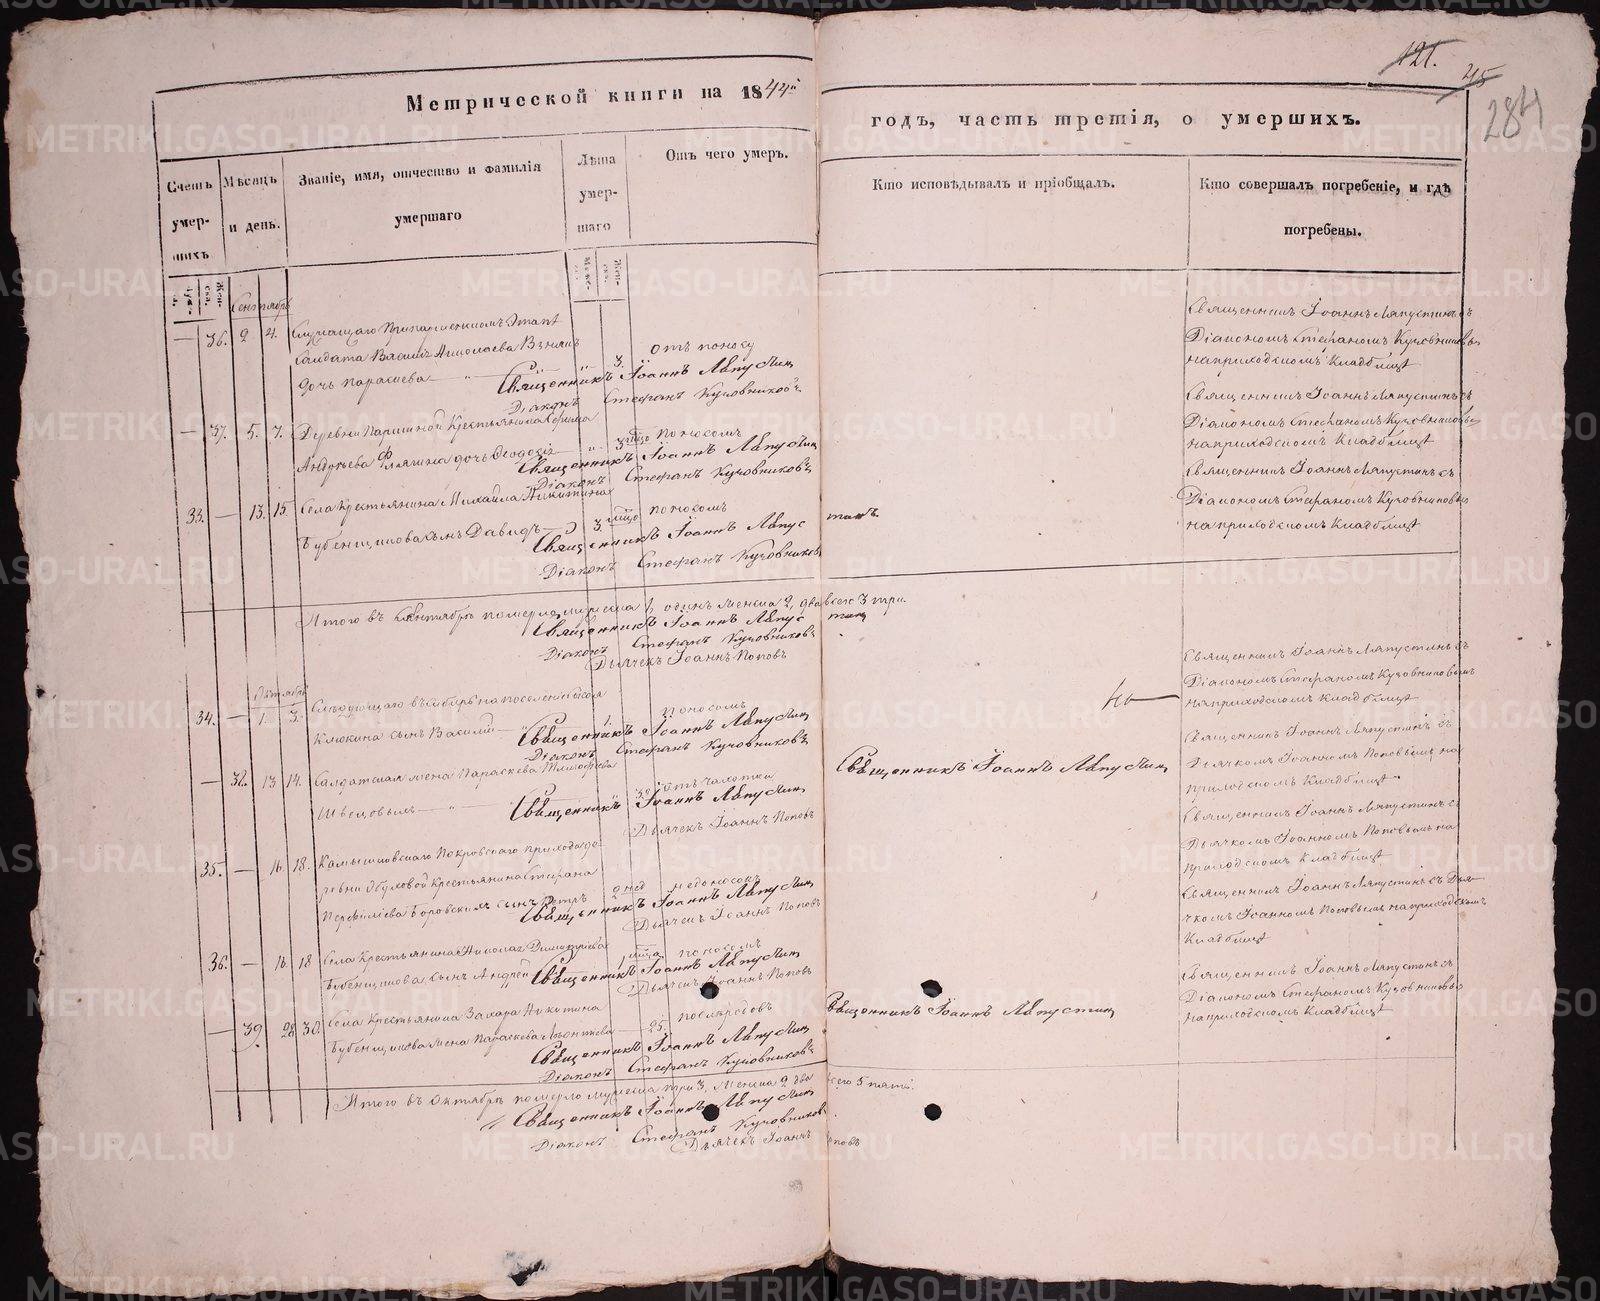 121.
45
284
Метрической книги на 1844й
годъ, часть третія, о умершихъ.
Счетъ умер-шихъ
Мѣсяцъ и день.
Званіе, имя, отчество и фамилія умершаго
Лѣта умер-шаго
Отъ чего умеръ.
Кто исповѣдывалъ и пріобщалъ.
Кто совершалъ погребеніе, и гдѣ погребены.
Сентябрь
— 36. 2 4.
Солдата
дочь Параскева
3.
отъ поносу
Священникъ Іоаннъ Ляпустинъ
Діаконъ Стефанъ Кузовниковъ
Священникъ Іоаннъ Ляпустинъ съ
Діакономъ Стефаномъ Кузовниковымъ
на приходскомъ кладбищѣ
— 37. 5. 7.
Деревни Крестьянина
дочь Ѳеодосія
3 мѣца поносомъ
Священникъ Іоаннъ Ляпустинъ
Діаконъ Стефанъ Кузовниковъ
Священникъ Іоаннъ Ляпустинъ съ
Діакономъ Стефаномъ Кузовниковымъ
на приходскомъ кладбищѣ
33. — 13. 15.
Села Крестьянина Михайла Никитина
Бубенщикова сынъ Давидъ
3. мѣца поносомъ
Священникъ Іоаннъ Ляпустинъ
Діаконъ Стефанъ Кузовниковъ
Священникъ Іоаннъ Ляпустинъ съ
Діакономъ Стефаномъ Кузовниковымъ
на приходскомъ кладбищѣ
Итого въ Сентябрѣ померло мужеска 1, одинъ женска 2, два всего 3 три.
Священникъ Іоаннъ Ляпустинъ
Діаконъ Стефанъ Кузовниковъ
Дьячекъ Іоаннъ Поповъ
Октябрь
34. — 1. 3.
Слѣдующаго въ Сибирь на поселеніе
Клюкина сынъ Василій
1.
поносомъ
Священникъ Іоаннъ Ляпустинъ
Діаконъ Стефанъ Кузовниковъ
Священникъ Іоаннъ Ляпустинъ съ
Діакономъ Стефаномъ Кузовниковымъ
на приходскомъ кладбищѣ
— 38. 13 14.
Солдатская жена Параскева Тимофеева
отъ чахотки
Священникъ Іоаннъ Ляпустинъ
Дьячекъ Іоаннъ Поповъ
Священникъ Іоаннъ Ляпустинъ
Священникъ Іоаннъ Ляпустинъ съ
Дьячкомъ Іоанномъ Поповымъ на
приходскомъ кладбищѣ
35. — 16. 18.
Камышловскаго Покровскаго прихода де
ревни Обуховой Крестьянина Стефана
Перфильева Боровскихъ сынъ Петръ
недоносокъ
Священникъ Іоаннъ Ляпустинъ
Дьячекъ Іоаннъ Поповъ
Священникъ Іоаннъ Ляпустинъ съ
Дьячкомъ Іоанномъ Поповымъ на
приходскомъ кладбищѣ
36. — 16. 18
Села Крестьянина Николая Димитріева
Бубенщикова сынъ Андрей
1 мѣца поносомъ
Священникъ Іоаннъ Ляпустинъ
Дьячекъ Іоаннъ Поповъ
Священникъ Іоаннъ Ляпустинъ съ Дья
чкомъ Іоанномъ Поповымъ на приходскомъ
кладбищѣ
— 39. 28 30.
Села Крестьянина Захара Никитина
Бубенщикова жена Параскева Леонтьева
25.
послѣ родовъ
Священникъ Іоаннъ Ляпустинъ
Діаконъ Стефанъ Кузовниковъ
Священникъ Іоаннъ Ляпустинъ
Священникъ Іоаннъ Ляпустинъ съ
Діакономъ Стефаномъ Кузовниковымъ
на приходскомъ кладбищѣ
Итого въ Октябрѣ померло мужеска три 3. женска 2 два всего 5 пять.
Священникъ Іоаннъ Ляпустинъ
Діаконъ Стефанъ Кузовниковъ
Дьячекъ Іоаннъ Поповъ
METRIKI.GASO-URAL.RU